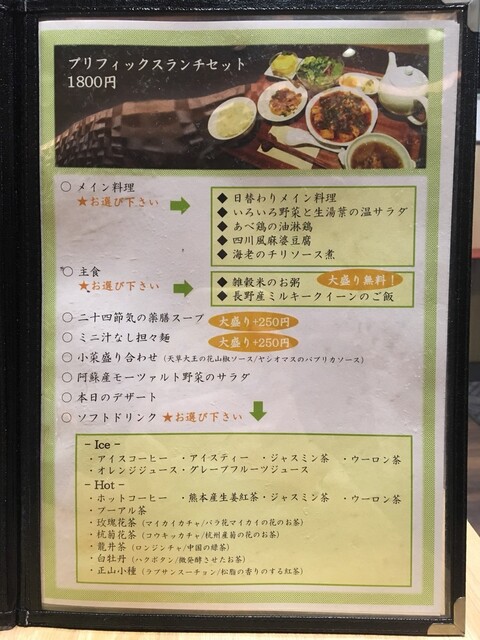 プリフィックスランチセット
1800円
○ メイン料理
★お選び下さい
◆ 日替わりメイン料理
◆ いろいろ野菜と生湯葉の温サラダ
◆ あべ鶏の油淋鶏
◆ 四川風麻婆豆腐
◆ 海老のチリソース煮
○ 主食
★お選び下さい
◆ 雑穀米のお粥 大盛り無料！
◆ 長野産ミルキークイーンのご飯
○ 二十四節気の薬膳スープ 大盛り+250円
○ ミニ汁なし担々麺 大盛り+250円
○ 小菜盛り合わせ（天草大王の花山椒ソース/ヤシオマスのパプリカソース）
○ 阿蘇産モーツァルト野菜のサラダ
○ 本日のデザート
○ ソフトドリンク ★お選び下さい
– Ice –
・アイスコーヒー ・アイスティー ・ジャスミン茶 ・ウーロン茶
・オレンジジュース・グレープフルーツジュース
– Hot –
・ホットコーヒー ・熊本産生姜紅茶・ジャスミン茶 ・ウーロン茶
・プーアル茶
・玫瑰花茶（マイカイカチャ/バラ花マイカイの花のお茶）
・杭菊花茶（コウキッカチャ/杭州産菊の花のお茶）
・龍井茶（ロンジンチャ/中国の緑茶）
・白牡丹（ハクボタン/微発酵させたお茶）
・正山小種（ラプサンスーチョン/松脂の香りのする紅茶）